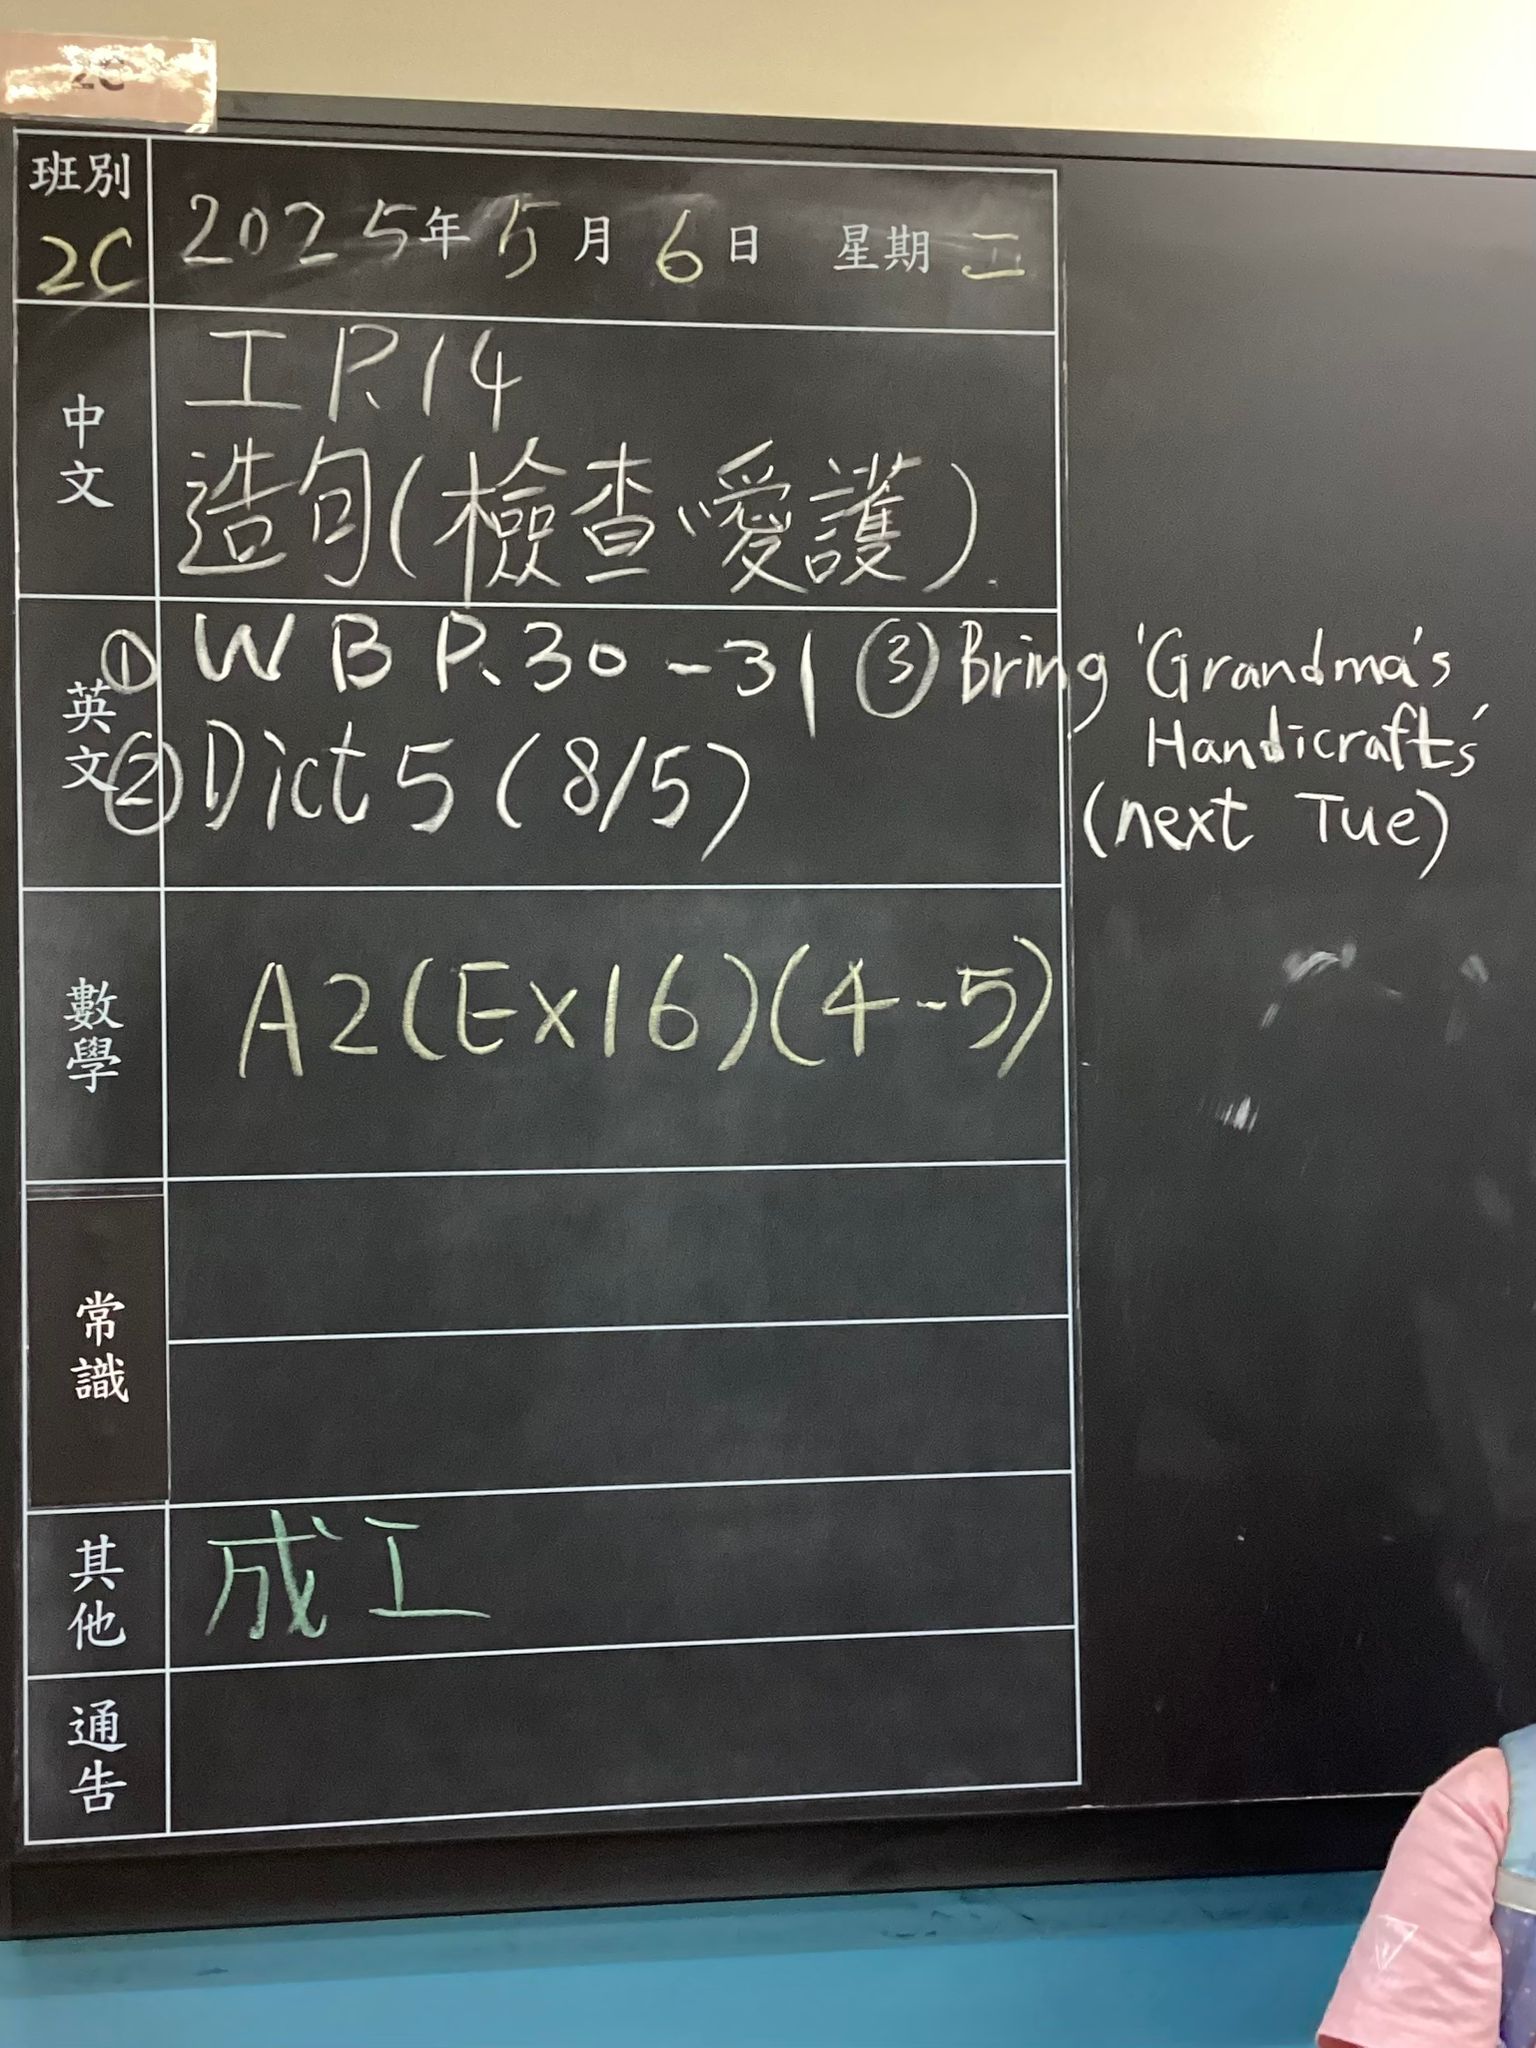 2C
班別
2C
2025年5月6日 星期二
中文
工 P.14
造句(檢查、愛護).
英文
① WB P.30-31 ③ Bring 'Grandma's
Handicrafts'
② Dict 5 (8/5)
(next Tue)
數學
A2(Ex16)(4-5)
常識
其他
成工
通告